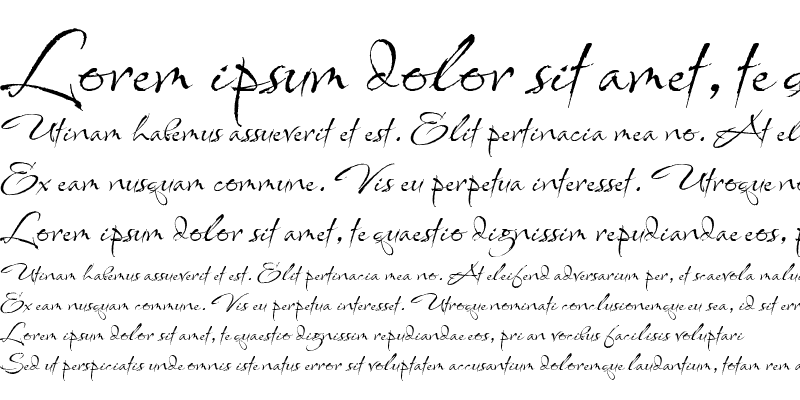 Lorem ipsum dolor sit amet, te q
Utinam habemus assueverit et est. Elit pertinacia mea no. At el
Ex eam nusquam commune. Vis eu perpetua interesset. Utroque no
Lorem ipsum dolor sit amet, te quaestio dignissim repudiandae eos, p
Utinam habemus assueverit et est. Elit pertinacia mea no. At eleifend adversarium per, et scaevola malu
Ex eam nusquam commune. Vis eu perpetua interesset. Utroque nominati conclusionemque eu sea, id sit err
Lorem ipsum dolor sit amet, te quaestio dignissim repudiandae eos, pri an vocibus facilisis voluptari
Sed ut perspiciatis unde omnis iste natus error sit voluptatem accusantium doloremque laudantium, totam rem a